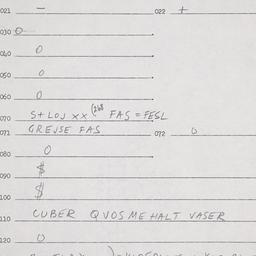 021 – 022 +
030 0
040 0
050 0
060 0
070 S+LOJ XX (268 FAS = FESL
071 GREJSE FAS 072 0
080 0
090 $
100 $
110 CUBER QVOSMEHALT VASER
120 0